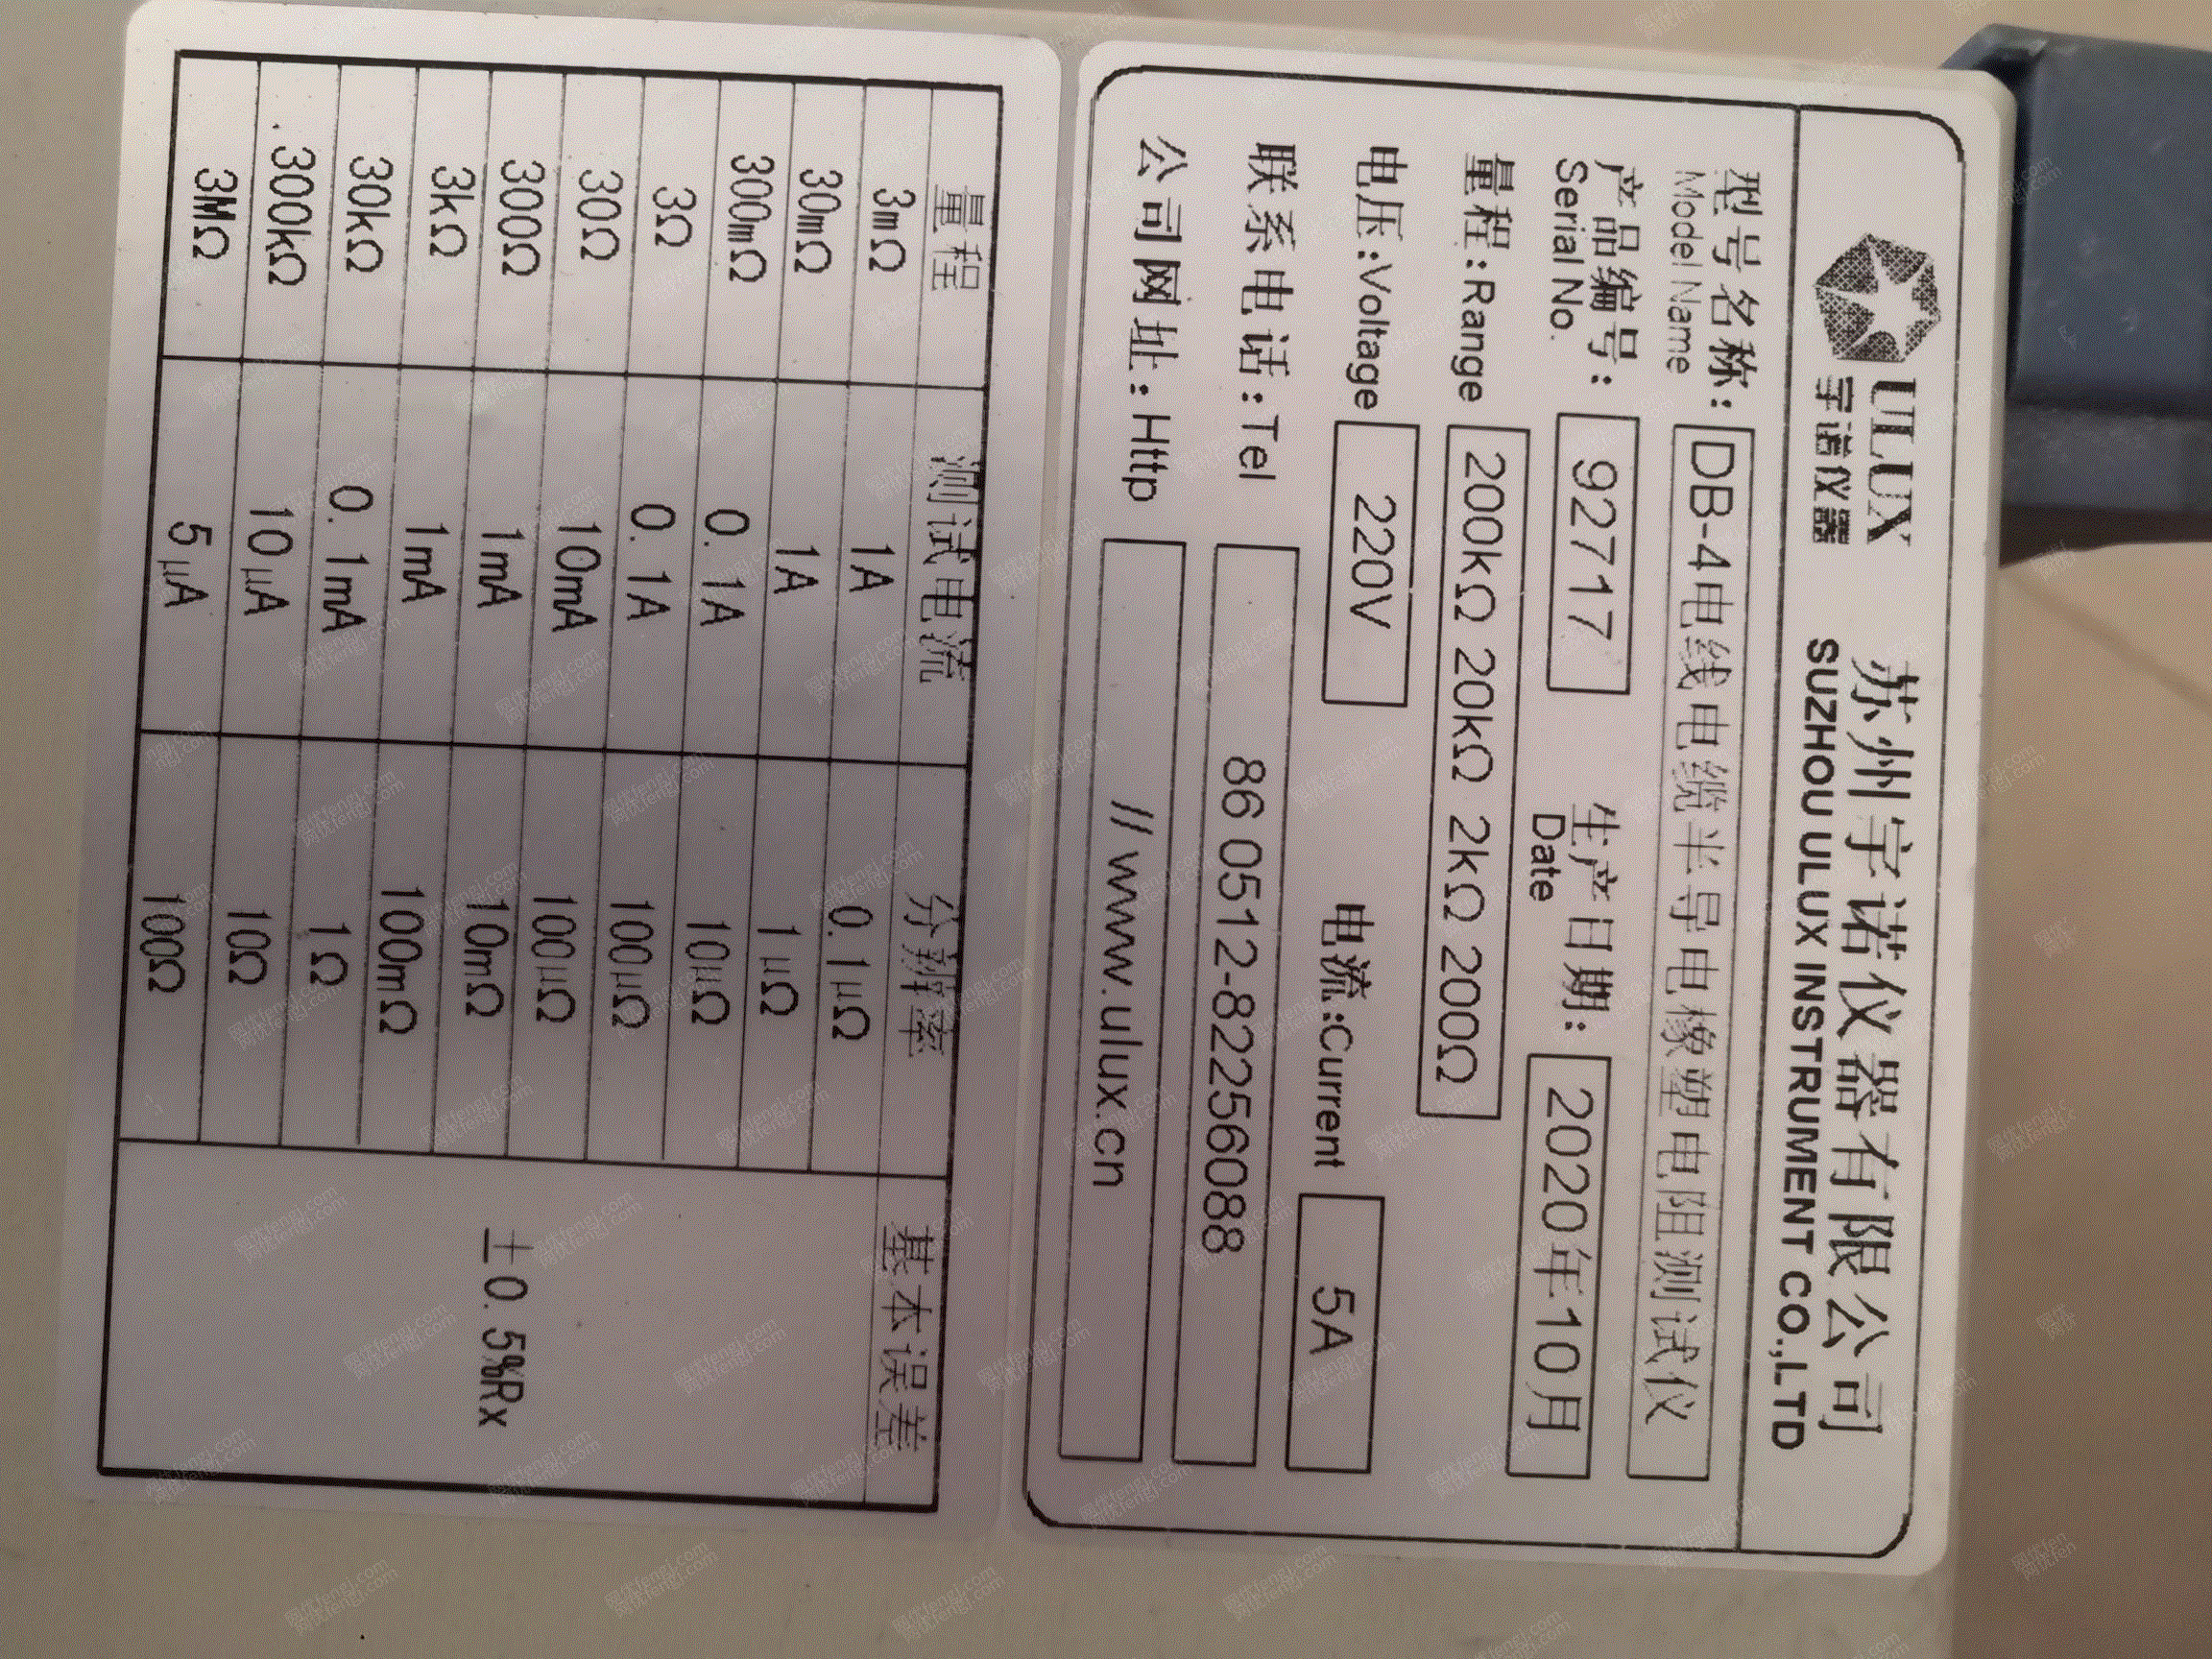 ULUX
宇诺仪器
苏州宇诺仪器有限公司
SUZHOU ULUX INSTRUMENT CO.,LTD
型号名称: DB-4电线电缆半导电橡塑电阻测试仪
Model Name
产品编号: 92717 生产日期: 2020年10月
Serial No. Date
量程:Range 200kΩ 20kΩ 2kΩ 200Ω
电压:Voltage 220V 电流:Current 5A
联系电话:Tel 86 0512-82256088
公司网址:Http // www.ulux.cn
量程 测试电流 分辨率 基本误差
3mΩ 1A 0.1μΩ
30mΩ 1A 1μΩ
300mΩ 0.1A 10μΩ
3Ω 0.1A 100μΩ
30Ω 10mA 100μΩ
300Ω 1mA 10mΩ
3kΩ 1mA 100mΩ
30kΩ 0.1mA 1Ω
300kΩ 10μA 10Ω
3MΩ 5μA 100Ω
±0.5%Rx